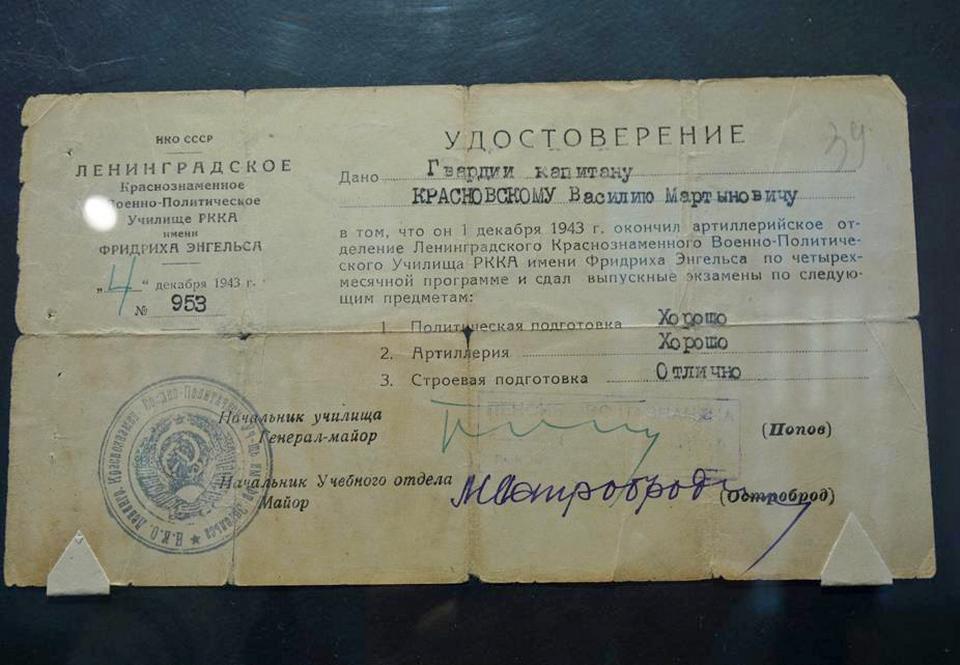 НКО СССР
ЛЕНИНГРАДСКОЕ
Краснознаменное
Военно-Политическое
Училище РККА
имени
ФРИДРИХА ЭНГЕЛЬСА
„4“ декабря 1943 г.
№ 953
УДОСТОВЕРЕНИЕ
39
Дано Гвардии капитану
КРАСНОВСКОМУ Василию Мартыновичу
в том, что он 1 декабря 1943 г. окончил артиллерийское от-
деление Ленинградского Краснознаменного Военно-Политиче-
ского Училища РККА имени Фридриха Энгельса по четырех-
месячной программе и сдал выпускные экзамены по следую-
щим предметам:
1. Политическая подготовка Хорошо
2. Артиллерия Хорошо
3. Строевая подготовка Отлично
Начальник училища
Генерал-майор (Попов)
Начальник Учебного отдела
Майор МОстроброд (Остроброд)